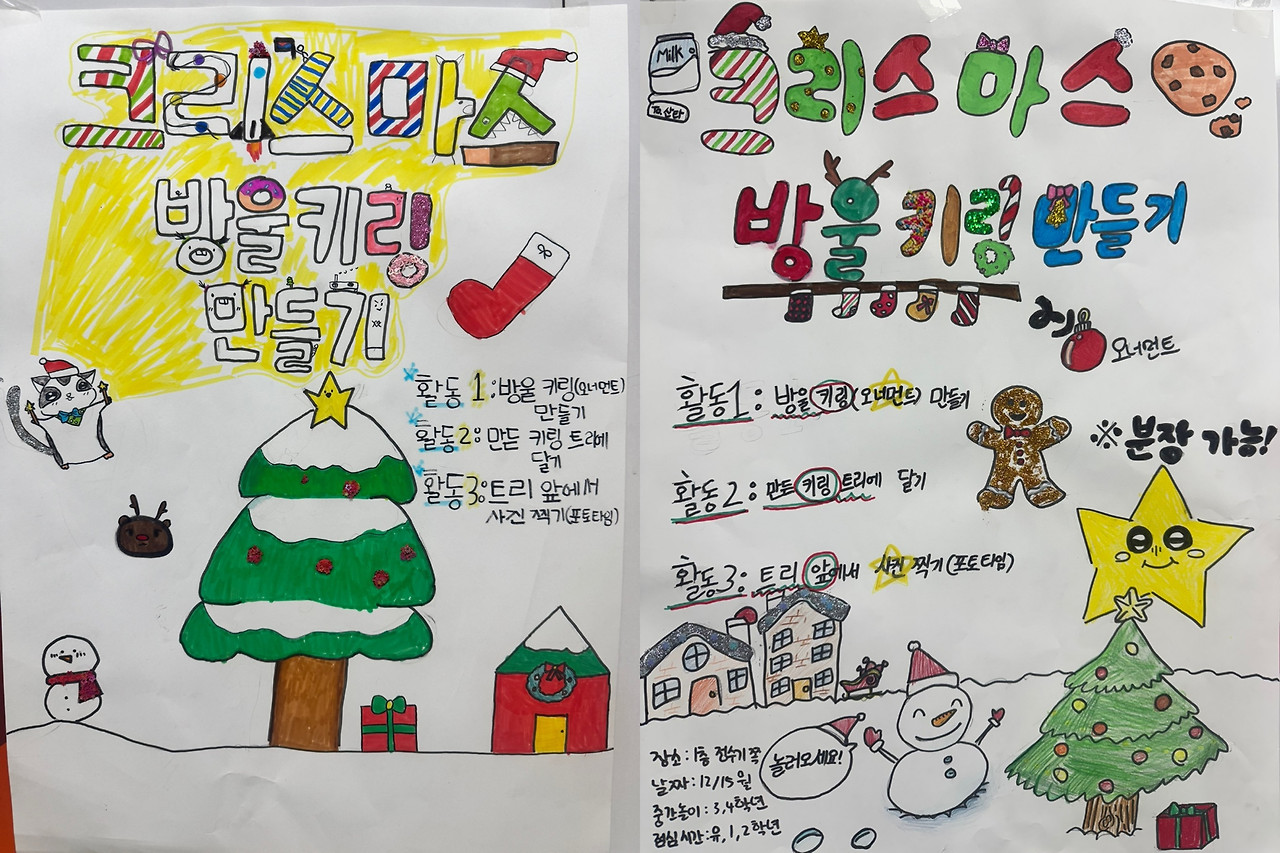 크리스마스
방울키링
만들기
활동 1:방울 키링(오너먼트)
만들기
활동2: 만든 키링 트리에
달기
활동3:트리 앞에서
사진 찍기(포토타임)
Milk
크리스마스
방울키링 만들기
오너먼트
활동1: 방울 키링(오너먼트) 만들기
※분장 가능!
활동2: 만든 키링 트리에 달기
활동3: 트리 앞에서 사진 찍기(포토타임)
놀러오세요!
장소:1층 정수기 쪽
날짜:12/15 월
중간놀이:3,4학년
점심시간:유,1,2학년